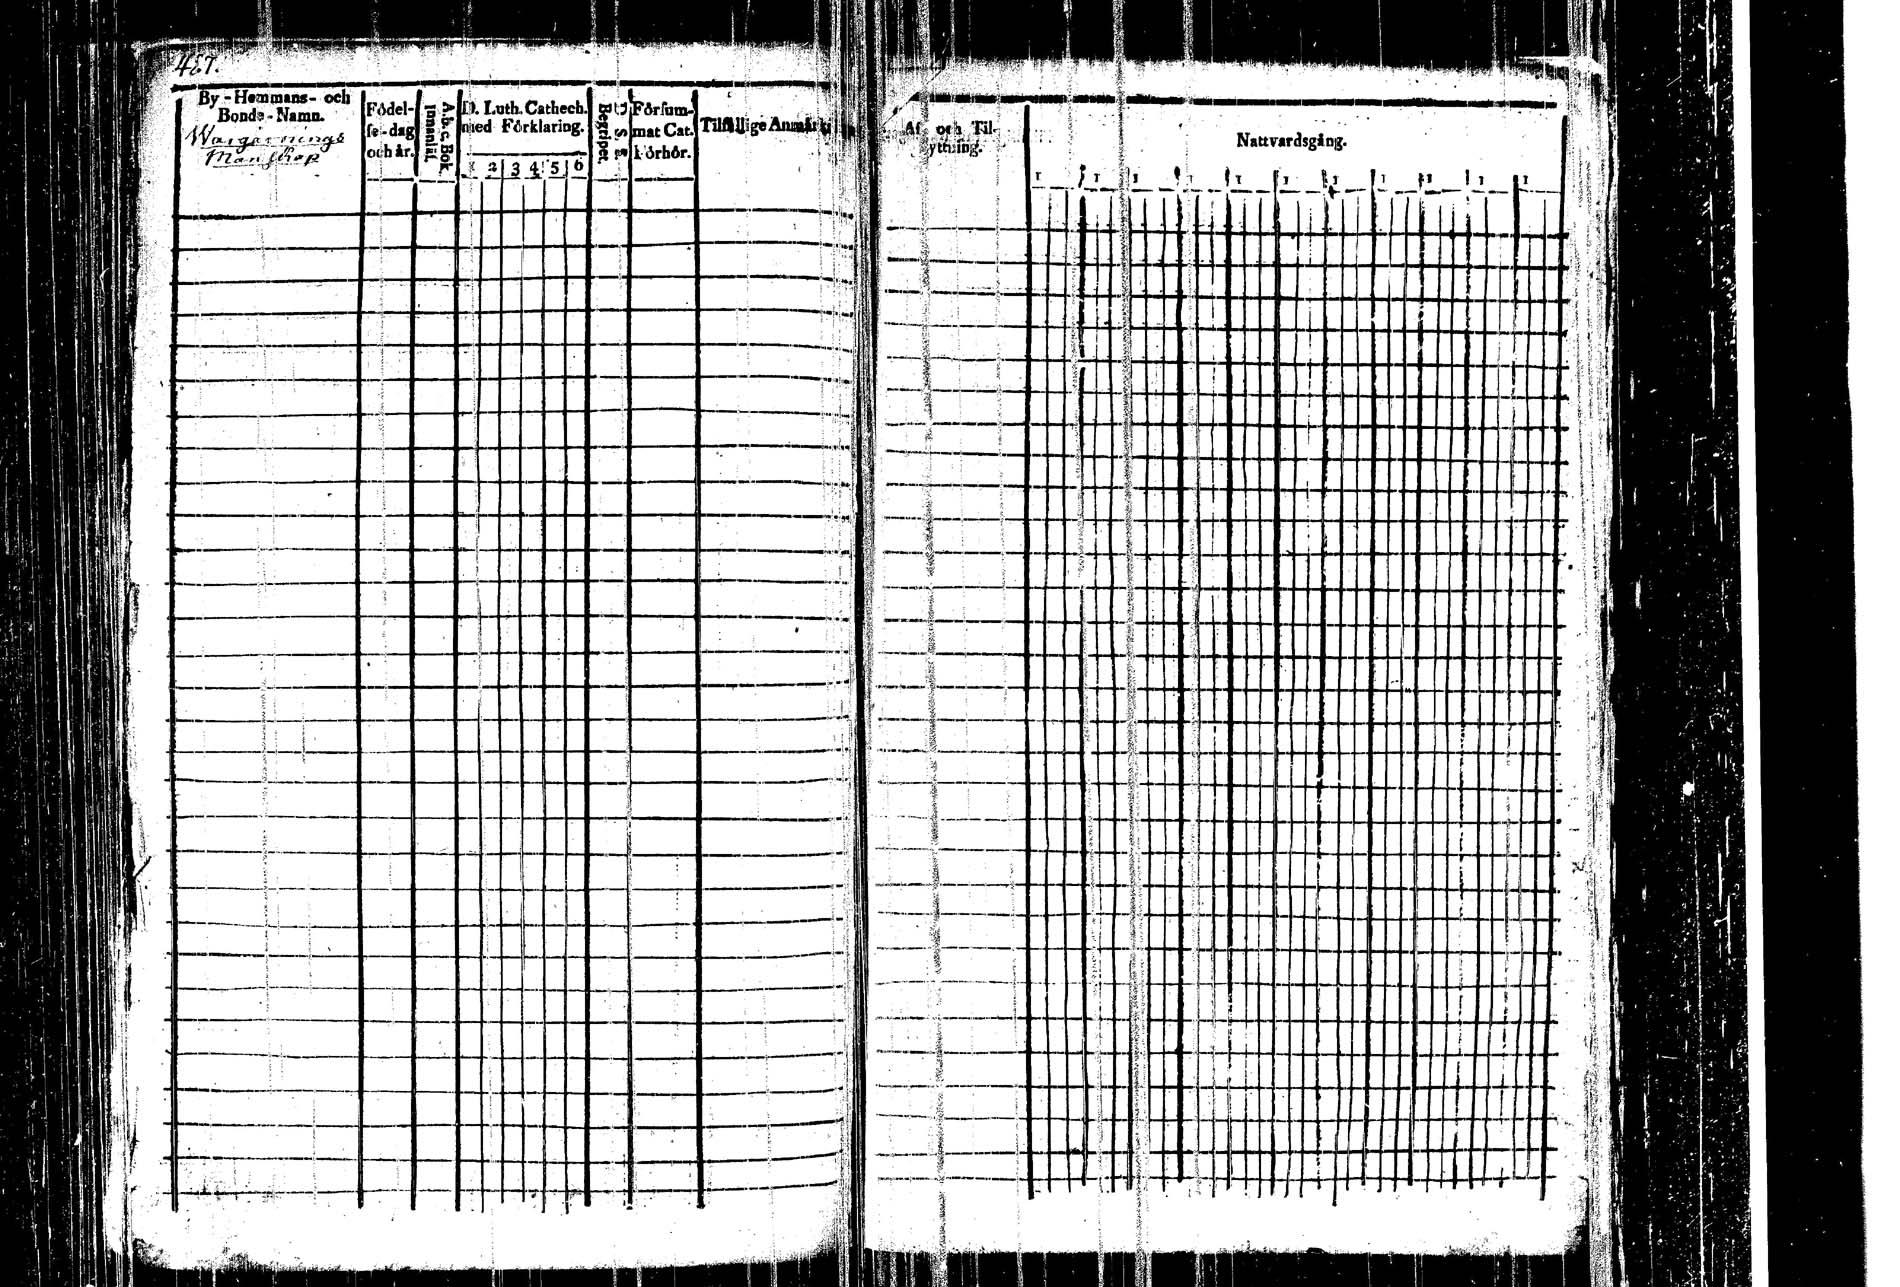 487.
By-Hemmans- och
Bonde-Namn.
Wargerings
Manskap
Födel-
se-dag
och år.
A.b.c.Bok
innanläs.
D. Luth. Cathech.
med Förklaring.
1 2 3 4 5 6
Begriper.
Försum-
mat Cat.
förhör.
Tilfällige Anmärk
Af- och Til-
yttning.
Nattvardsgång.
1 1 1 1 1 1 1 1 1 1 1